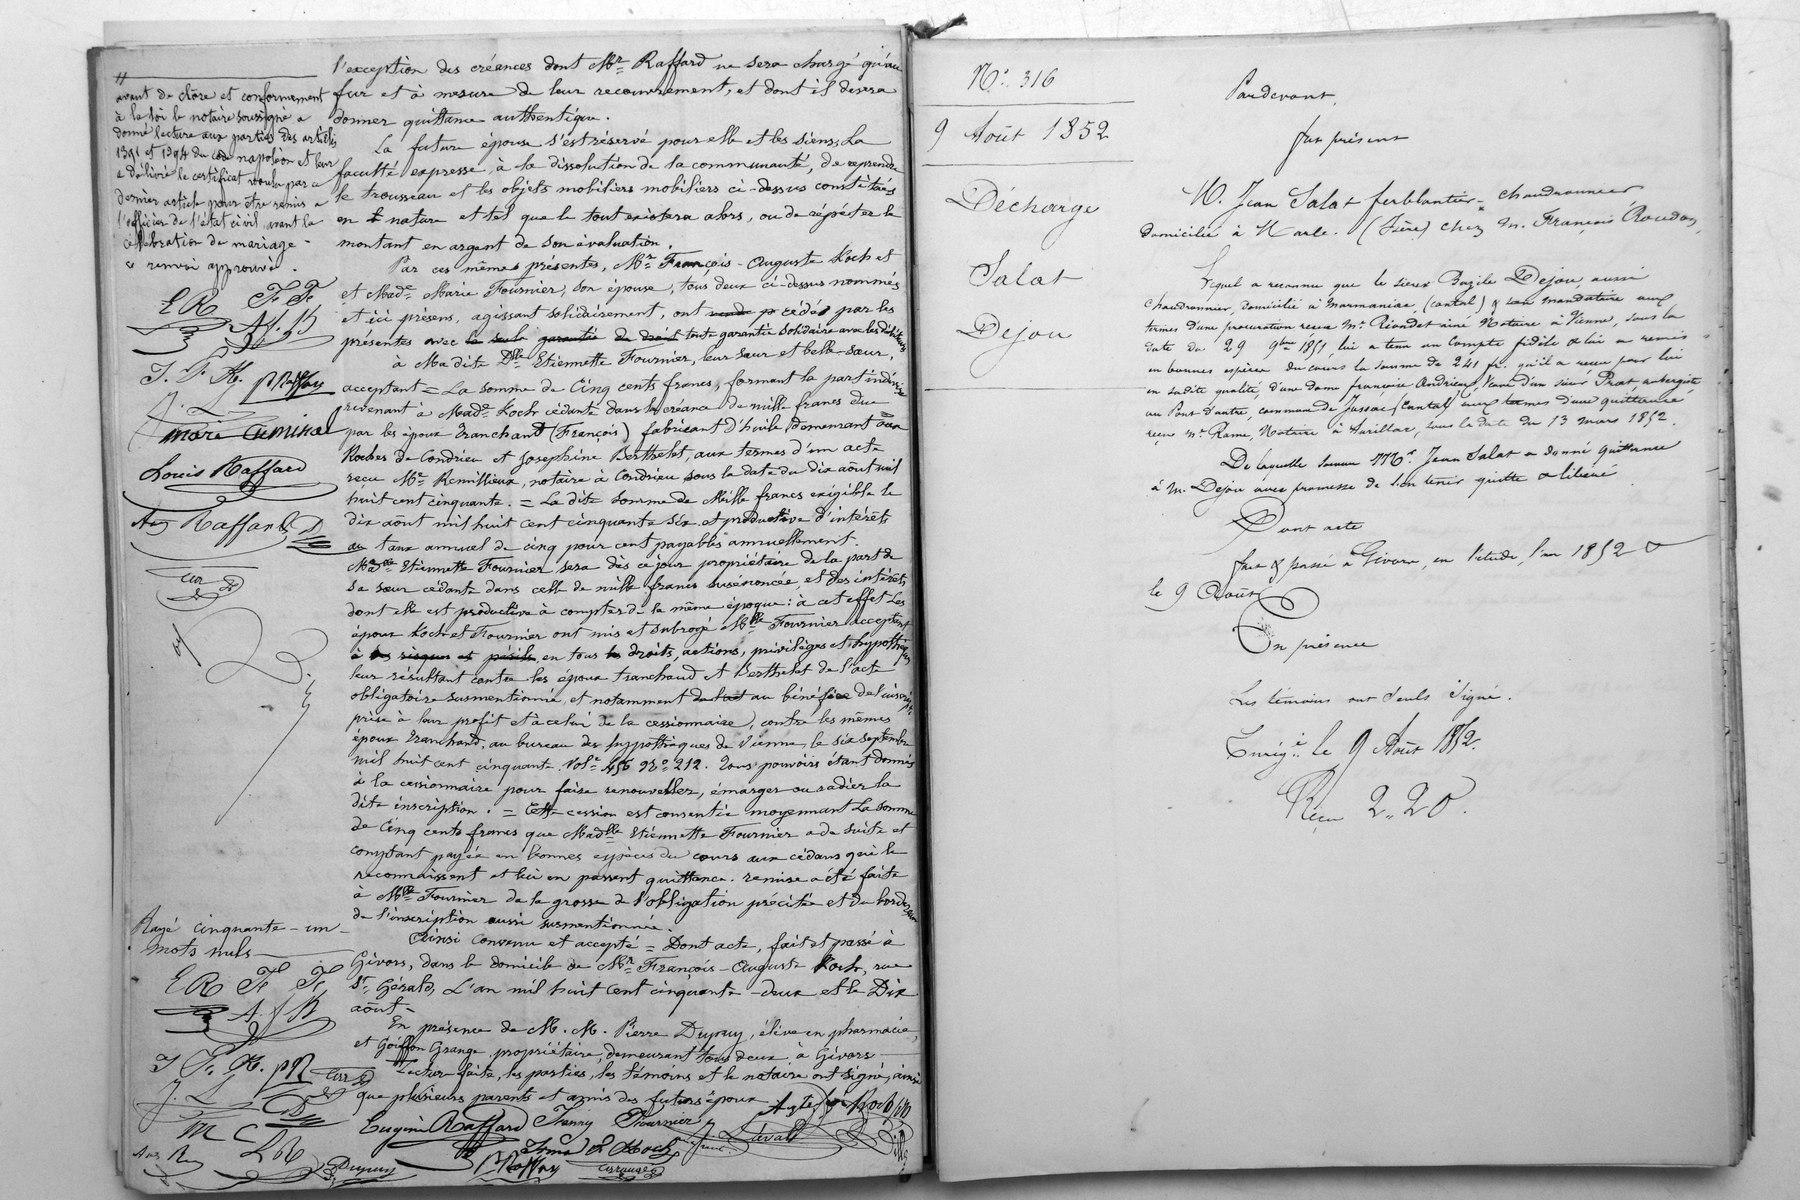 avant de clôre et conformement
à la loi le notaire soussigné a
donné lecture aux parties des articles
1391 et 1394 du code napoléon et leur
a délivré le certificat voulu par ce
dernier article pour être remis à
l'officier de l'état civil avant la
célébration du mariage -
ce renvoi approuvé.
E R F F
A. f. K
J. F. K. P Raffay
J. L
marie Ceminal
Louis Raffard
Aug Raffard D
Rayé cinquante-un
mots nuls
E R F F
A. f K
J F. K. P R
J. L
M C L R
l'exception des créances dont Mr Raffard ne sera chargé qu'au
fur et à mesure de leur recouvrement, et dont il devra
donner quittance authentique.
La future épouse s'est réservé pour elle et les siens, La
faculté expresse, à la dissolution de la communauté, de reprendre
le trousseau et les objets mobiliers mobiliers ci-dessus constitués
en nature et tel que le tout existera alors, ou de répéter le
montant en argent de son évaluation.
Par ces mêmes présentes, Mr François-Auguste Koch et
et Made Marie Fournier, son épouse, tous deux ci-dessus nommés
et ici présens, agissant solidairement, ont cédé par les
présentes avec la seule garantie de droit toute garantie solidaire avec les débiteurs
à Ma dite Dlle Etiennette Fournier, leur sœur et belle-sœur,
acceptant = La somme de Cinq cents francs, formant la part indivise
revenant à Made Koch cédante dans la créance de mille francs due
par les époux Tranchand (François) fabricant d'huile demeurant aux
Roches de Condrieu et Josephine Berthelet, aux termes d'un acte
reçu Me Remillieux, notaire à Condrieu sous la date du dix août mil
huit cent cinquante. = La dite somme de Mille francs exigible le
dix août mil huit cent cinquante six et productive d'intérêts
au taux annuel de cinq pour cent payables annuellement.
Madelle Etiennette Fournier sera dès ce jour propriétaire de la part de
sa sœur cédante dans celle de mille francs susénoncée, et des intérêts
dont elle est productive à compter de la même époque : à cet effet Les
époux Koch et Fournier ont mis et subrogé Mlle Fournier acceptant
à les risques et périls, en tous les droits, actions, privilèges et hypothèques
leur résultant contre les époux tranchand et Berthelet de l'acte
obligatoire susmentionné, et notamment de tout au bénéfice de l'inscript.
prise à leur profit et à celui de la cessionnaire, contre les mêmes
époux Tranchand, au bureau des hypothèques de Vienne, le six septembre
mil huit cent cinquante. Vol. 456 No 212. Tous pouvoirs étant donnés
à la cessionnaire pour faire renouveller, émarger ou radier la
dite inscription. = Cette cession est consentie moyennant La somme
de Cinq cents francs que Madlle Etiennette Fournier a de suite et
comptant payée en bonnes espèces du cours aux cédans qui le
reconnaissent et lui en passent quittance. remise a été faite
à Mlle Fournier de la grosse de l'obligation précitée et du bordereau
de l'inscription aussi susmentionnée.
Ainsi convenu et accepté = Dont acte, fait et passé à
Givors, dans le domicile de Mr François-Auguste Koch, rue
St Gérald, L'an mil huit cent cinquante-deux et le Dix
août -
En présence de M. M. Pierre Dupuy, élève en pharmacie,
et Goiffon Grange, propriétaire, demeurant tous deux à Givors
Lecture faite, les parties, les témoins et le notaire ont signé, ainsi
que plusieurs parents et amis des futurs époux
Eugène Raffard Fanny Fournier
Irma L Koch
P Raffay
Dupuy
No 316
9 Août 1852
Décharge
Salat
Dejou
Pardevant,
fut présent
M. Jean Salat ferblantier-chaudronnier
domicilié à Nante. (Isère) chez M. François Roudon,
Lequel a reconnu que le sieur Bazile Dejou, aussi
chaudronnier, domicilié à Marmaniac (cantal) & son mandataire aux
termes d'une procuration reçue Me Riondet ainé Notaire à Vienne, sous la
date du 29 9bre 1851, lui a tenu un compte fidèle & lui a remis
en bonnes espèces du cours la somme de 241 fr. qu'il a reçue pour lui
en sadite qualité, d'une dame françoise Andrieux, Veuve d'un sieur Prat, aubergiste
au Pont d'autré, commune de Jussac (Cantal) aux termes d'une quittance
reçue Me Rame, Notaire à Aurillac, sous la date du 13 mars 1852.
De laquelle somme Mr Jean Salat a donné quittance
à M. Dejou avec promesse de l'en tenir quitte & libéré.
Dont acte
fait & passé à Givors, en l'étude, l'an 1852 &
le 9 Août
En présence
Les témoins ont seuls signé.
Enregé le 9 Août 1852.
Reçu 2.20.